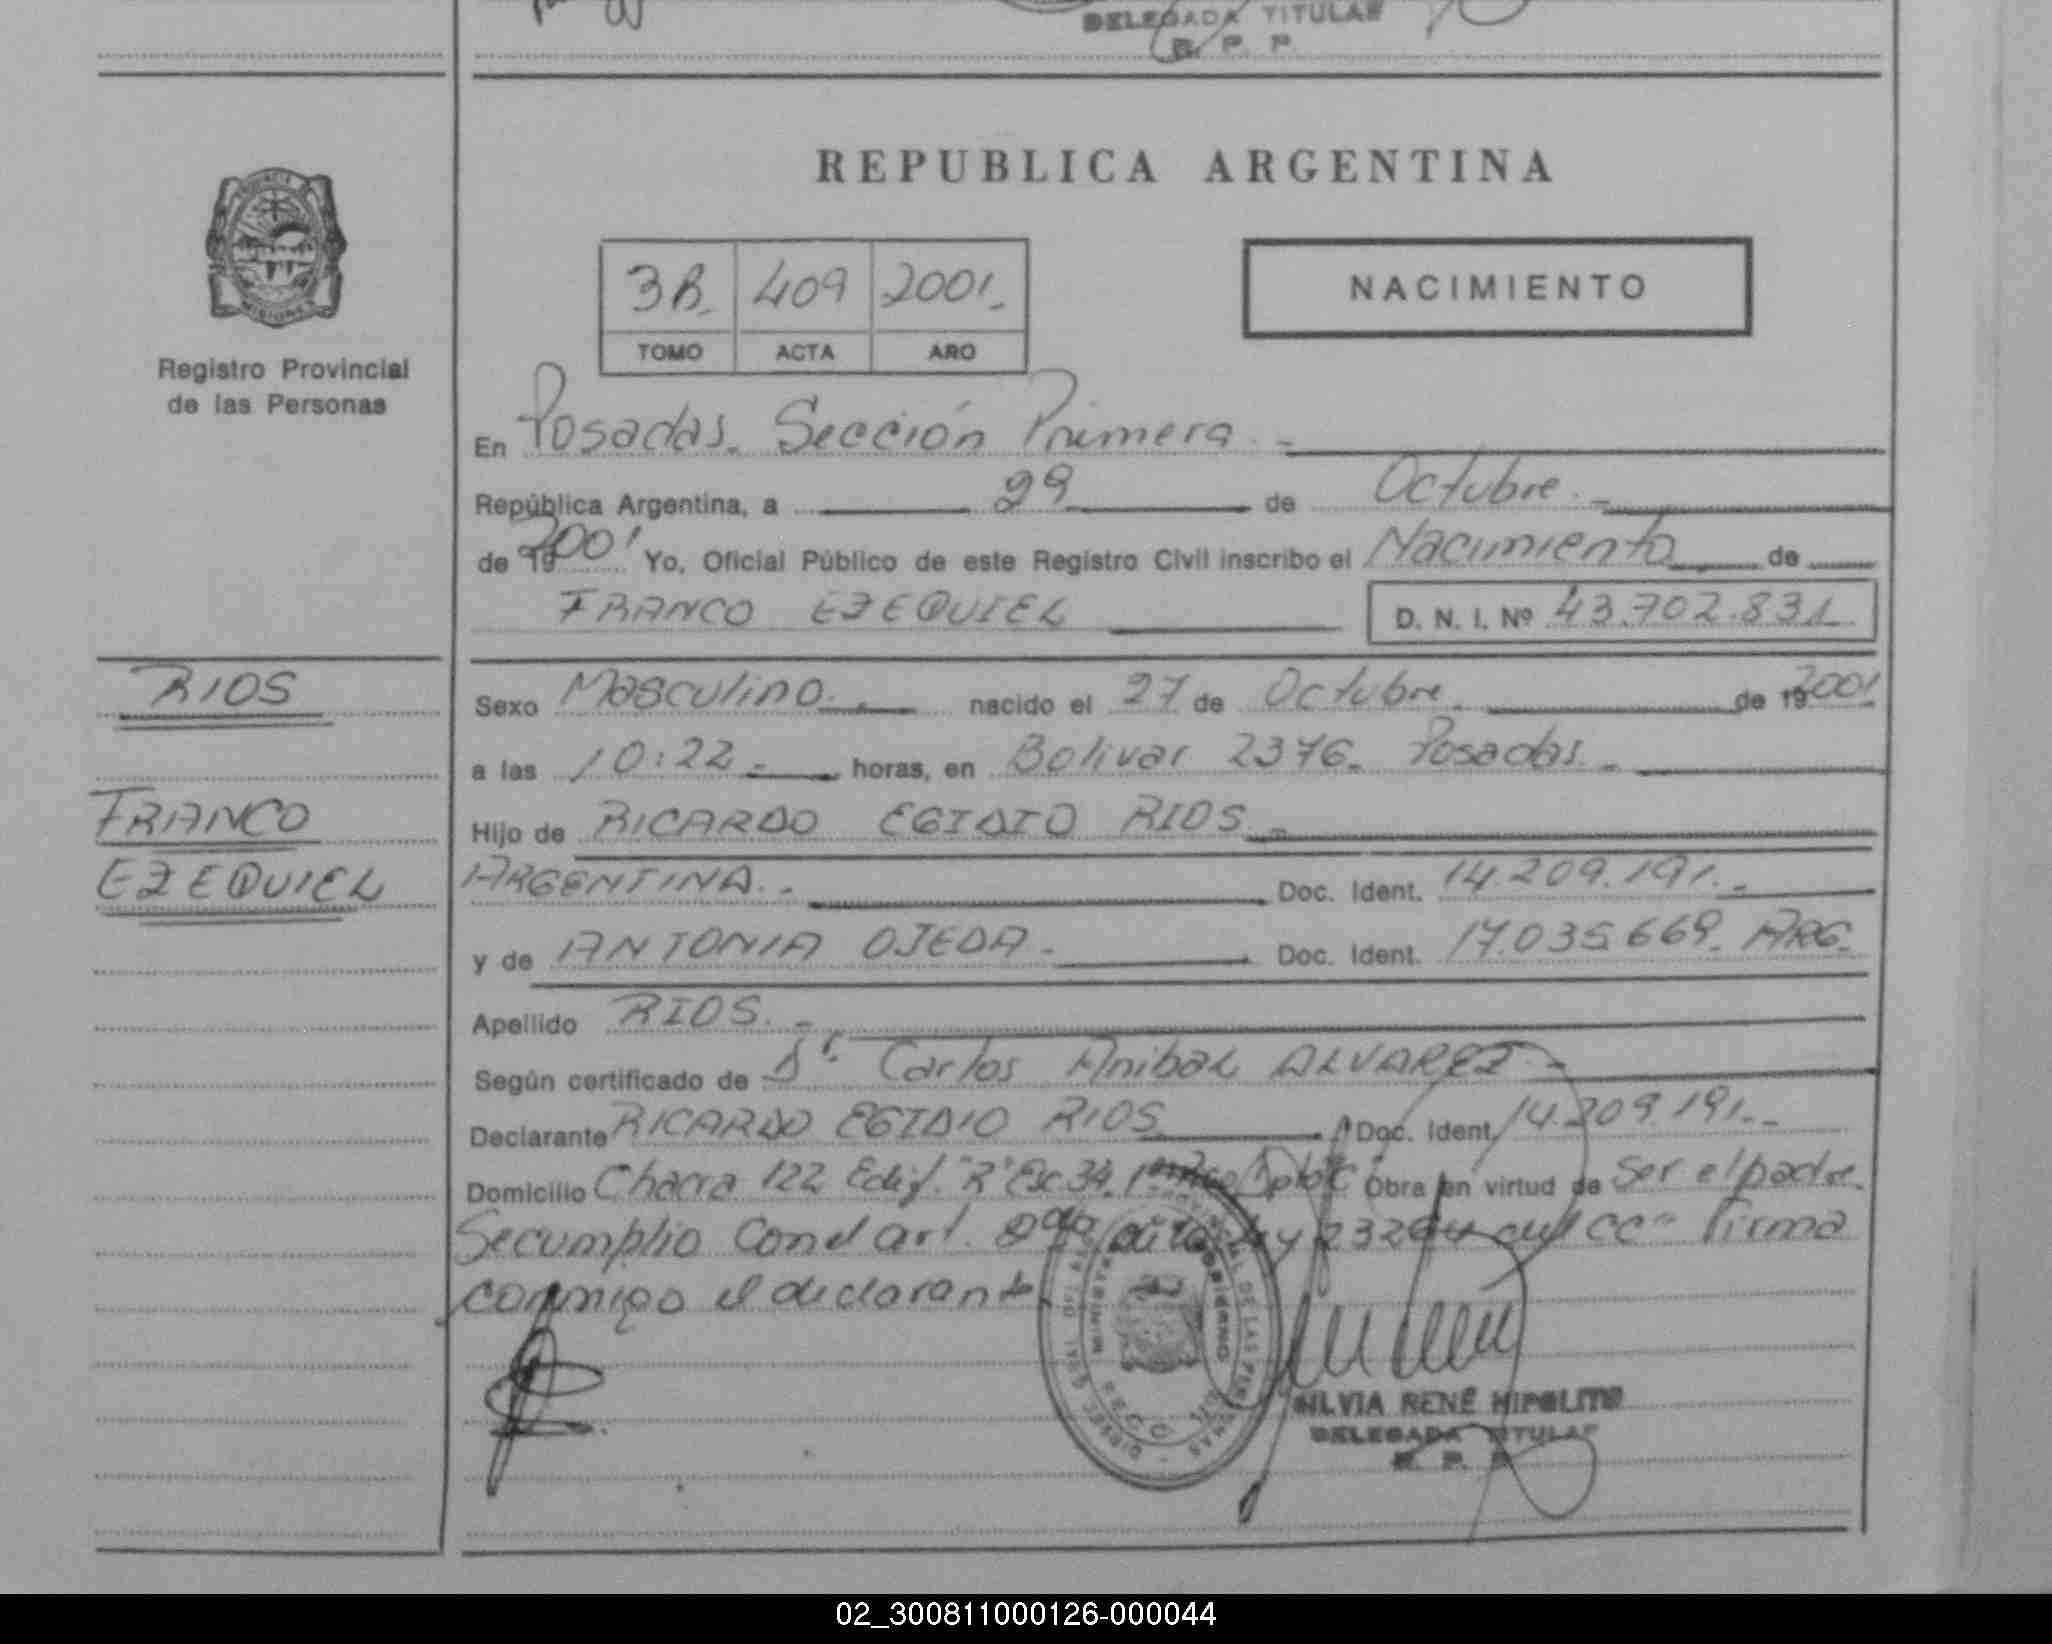 DELEGADA TITULAR
R. P. P.
REPUBLICA ARGENTINA
3B. 409 2001.
TOMO ACTA AÑO
NACIMIENTO
PROVINCIA
MISIONES
Registro Provincial
de las Personas
En Posadas. Sección Primera.-
República Argentina, a 29 de Octubre.-
de 19 2001 Yo, Oficial Público de este Registro Civil inscribo el Nacimiento de
FRANCO EZEQUIEL
D. N. I. Nº 43.702.831
RIOS
FRANCO
EZEQUIEL
Sexo Masculino.- nacido el 27 de Octubre. de 19 2001
a las 10:22.- horas, en Bolivar 2376. Posadas.-
Hijo de RICARDO EGIDIO RIOS.-
ARGENTINA.- Doc. Ident. 14.209.191.-
y de ANTONIA OJEDA.- Doc. Ident. 17.035.669. ARG.
Apellido RIOS.-
Según certificado de Dr. Carlos Anibal ALVAREZ.-
Declarante RICARDO EGIDIO RIOS Doc. Ident. 14.209.191.-
Domicilio Chacra 122 Edif. "R" Esc 34. Dpto"C" Obra en virtud de Ser el padre.
Se cumplio con el art. ley 23264 del CC" Firma
conmigo el declarante.
SILVIA RENÉ HIPOLITO
DELEGADA TITULAR
R. P. P.
02_300811000126-000044